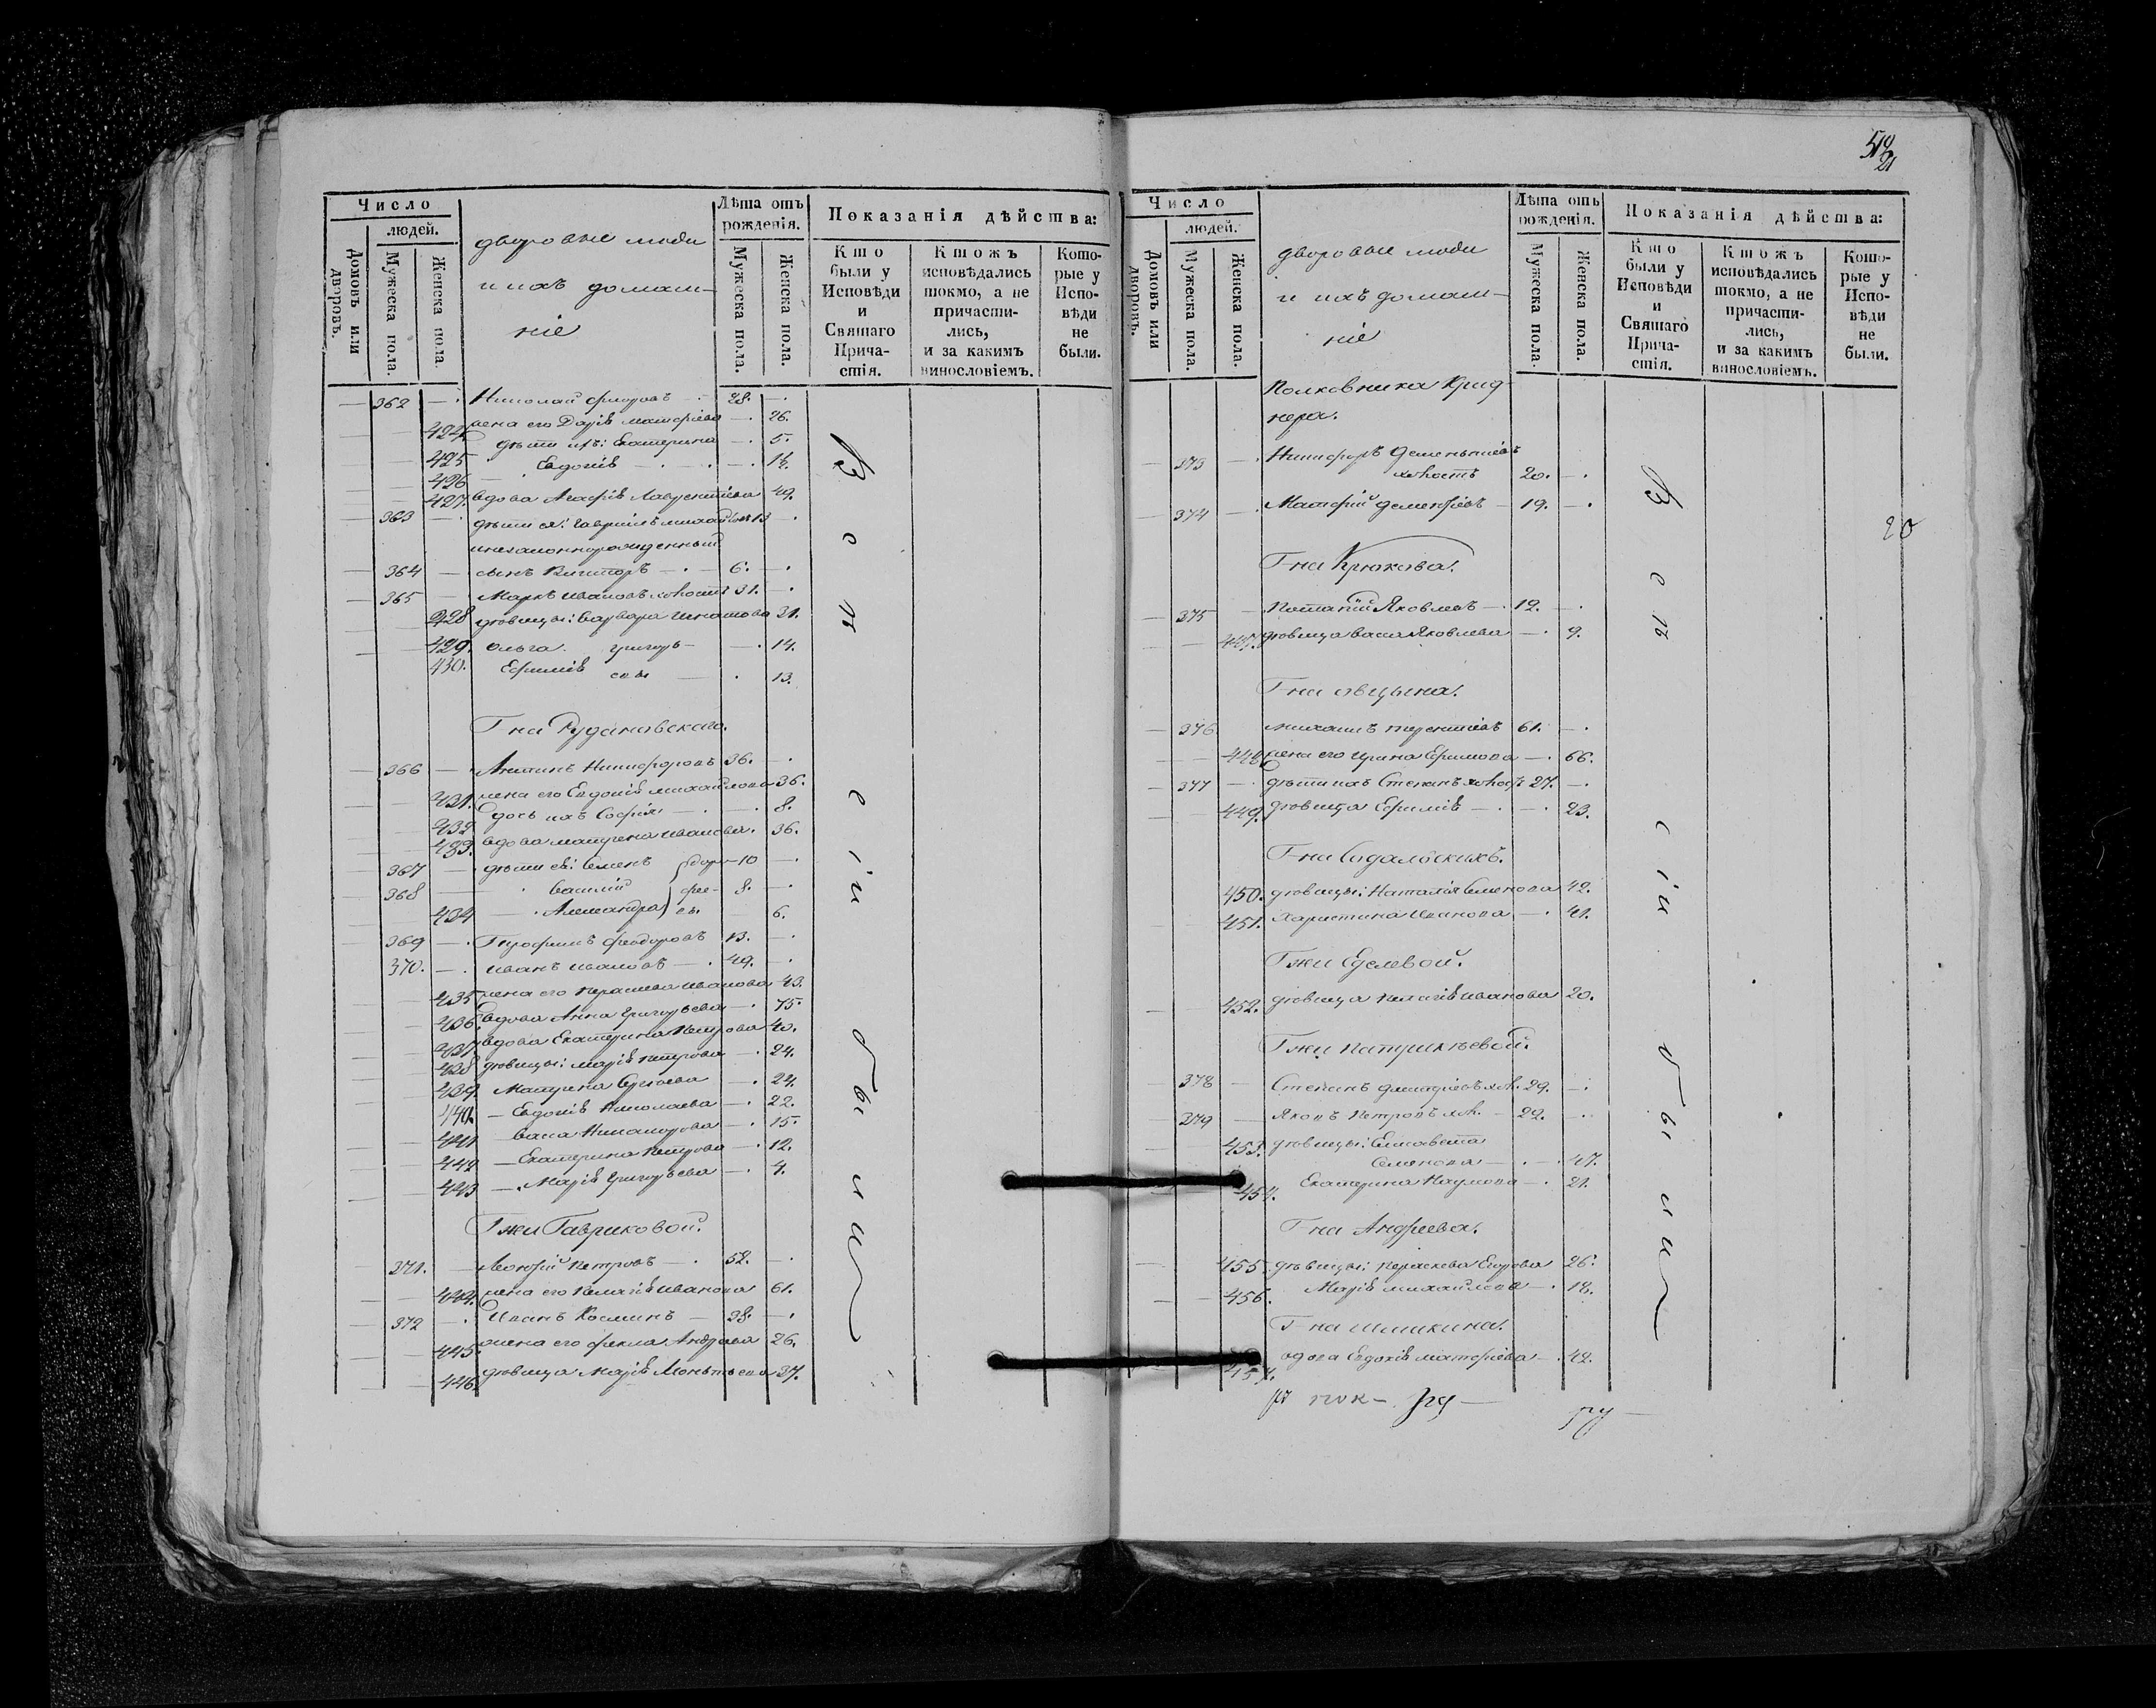 Число
людей.
Домовъ или дворовъ.
Мужеска пола.
Женска пола.
дворовые люди
и ихъ домаш-
ніе
Лѣта отъ рожденія.
Мужеска пола.
Женска пола.
Показанія дѣйства:
Кто были у Исповѣди и Святаго Прича-стія.
Ктожъ исповѣдались токмо, а не причасти-лись, и за какимъ винословіемъ.
Кото-рые у Испо-вѣди не были.
362 — Николай 28. —
424. жена его Дарія Матфіева — 26.
425 дѣти ихъ: Екатерина — 5.
426 Евдокія — 1½.
427. вдова Агафія Лаврентіева 49.
363 — дѣти ея: Гавріилъ 13 —
и незаконнорожденный
364 — сынъ Викторъ — 6. —
365 — Маркъ Ивановъ холостъ 31. —
428 дѣвицы: Варвара Игнатова 31.
429. Ольга григорь- — 14.
430. Ефимія евы — 13.
Г-на Рудановскаго.
366 — Никифоровъ 36. —
431. жена его Евдокія Михайлова 36.
432 дочь ихъ Софія — 8.
433. вдова Матрена Иванова. 36.
367 — дѣти ея: Семенъ 10 —
368 Василій 8. —
434 — Александра 6.
369 — Трофимъ Феодоровъ 13. —
370. — Иванъ Ивановъ — 49. —
435 жена его Ираида Иванова 43.
436. вдова Анна Григорьева — 75.
437. вдова Екатерина Петрова 40.
438 дѣвицы: Марія Петрова — 24.
439. Матрена Сергѣева — 24.
440. — Евдокія Николаева — 22.
441 Васса Никанорова — 15.
442 — Екатерина Петрова — 12.
443 — Марія Григорьева — 4.
Г-жи Гавриковой.
371. — Петровъ — 52. —
444. жена его Пелагія Иванова 61.
372 — Иванъ Косминъ — 38. —
445. жена его Фекла Андреева 26.
446. дѣвица Марія Леонтьева 37.
В с ѣ с і и б ы л и
518
21
Число
людей.
Домовъ или дворовъ.
Мужеска пола.
Женска пола.
дворовые люди
и ихъ домаш-
ніе
Лѣта отъ рожденія.
Мужеска пола.
Женска пола.
Показанія дѣйства:
Кто были у Исповѣди и Святаго Прича-стія.
Ктожъ исповѣдались токмо, а не причасти-лись, и за какимъ винословіемъ.
Кото-рые у Испо-вѣди не были.
Полковника Крид-
нера.
373 — Никифоръ Дементіевъ
холостъ 20. —
374 — Матфій Дементіевъ — 19. —
20
Г-на Крюкова.
375 — Потапій Яковлевъ — 12. —
447. дѣвица Васса Яковлева — 9.
Г-на Овцына.
376 Михаилъ Терентіевъ 61. —
448 жена его Ирина Ефимова — 66.
377 — дѣти ихъ Степанъ холост 27. —
449. дѣвица Ефимія — 23.
450. дѣвицы: Наталія Семенова 42.
451. Харистина Иванова — 41.
452. дѣвица Пелагія Иванова 20.
Г-жи Патрикѣевой.
378 — Степанъ Дмитріевъ хол. 29. —
379 — Яковъ Петровъ хол. — 22. —
453. дѣвицы: Елисавета
Семенова — 47.
454. Екатерина Наумова — 21.
Г-на Андреева.
455. дѣвицы: Параскева Егорова 26.
456. Марія Михайлова — 18.
Г-на Шишкина.
457. вдова Евдокія Матфіева — 42.
В с ѣ с і и б ы л и